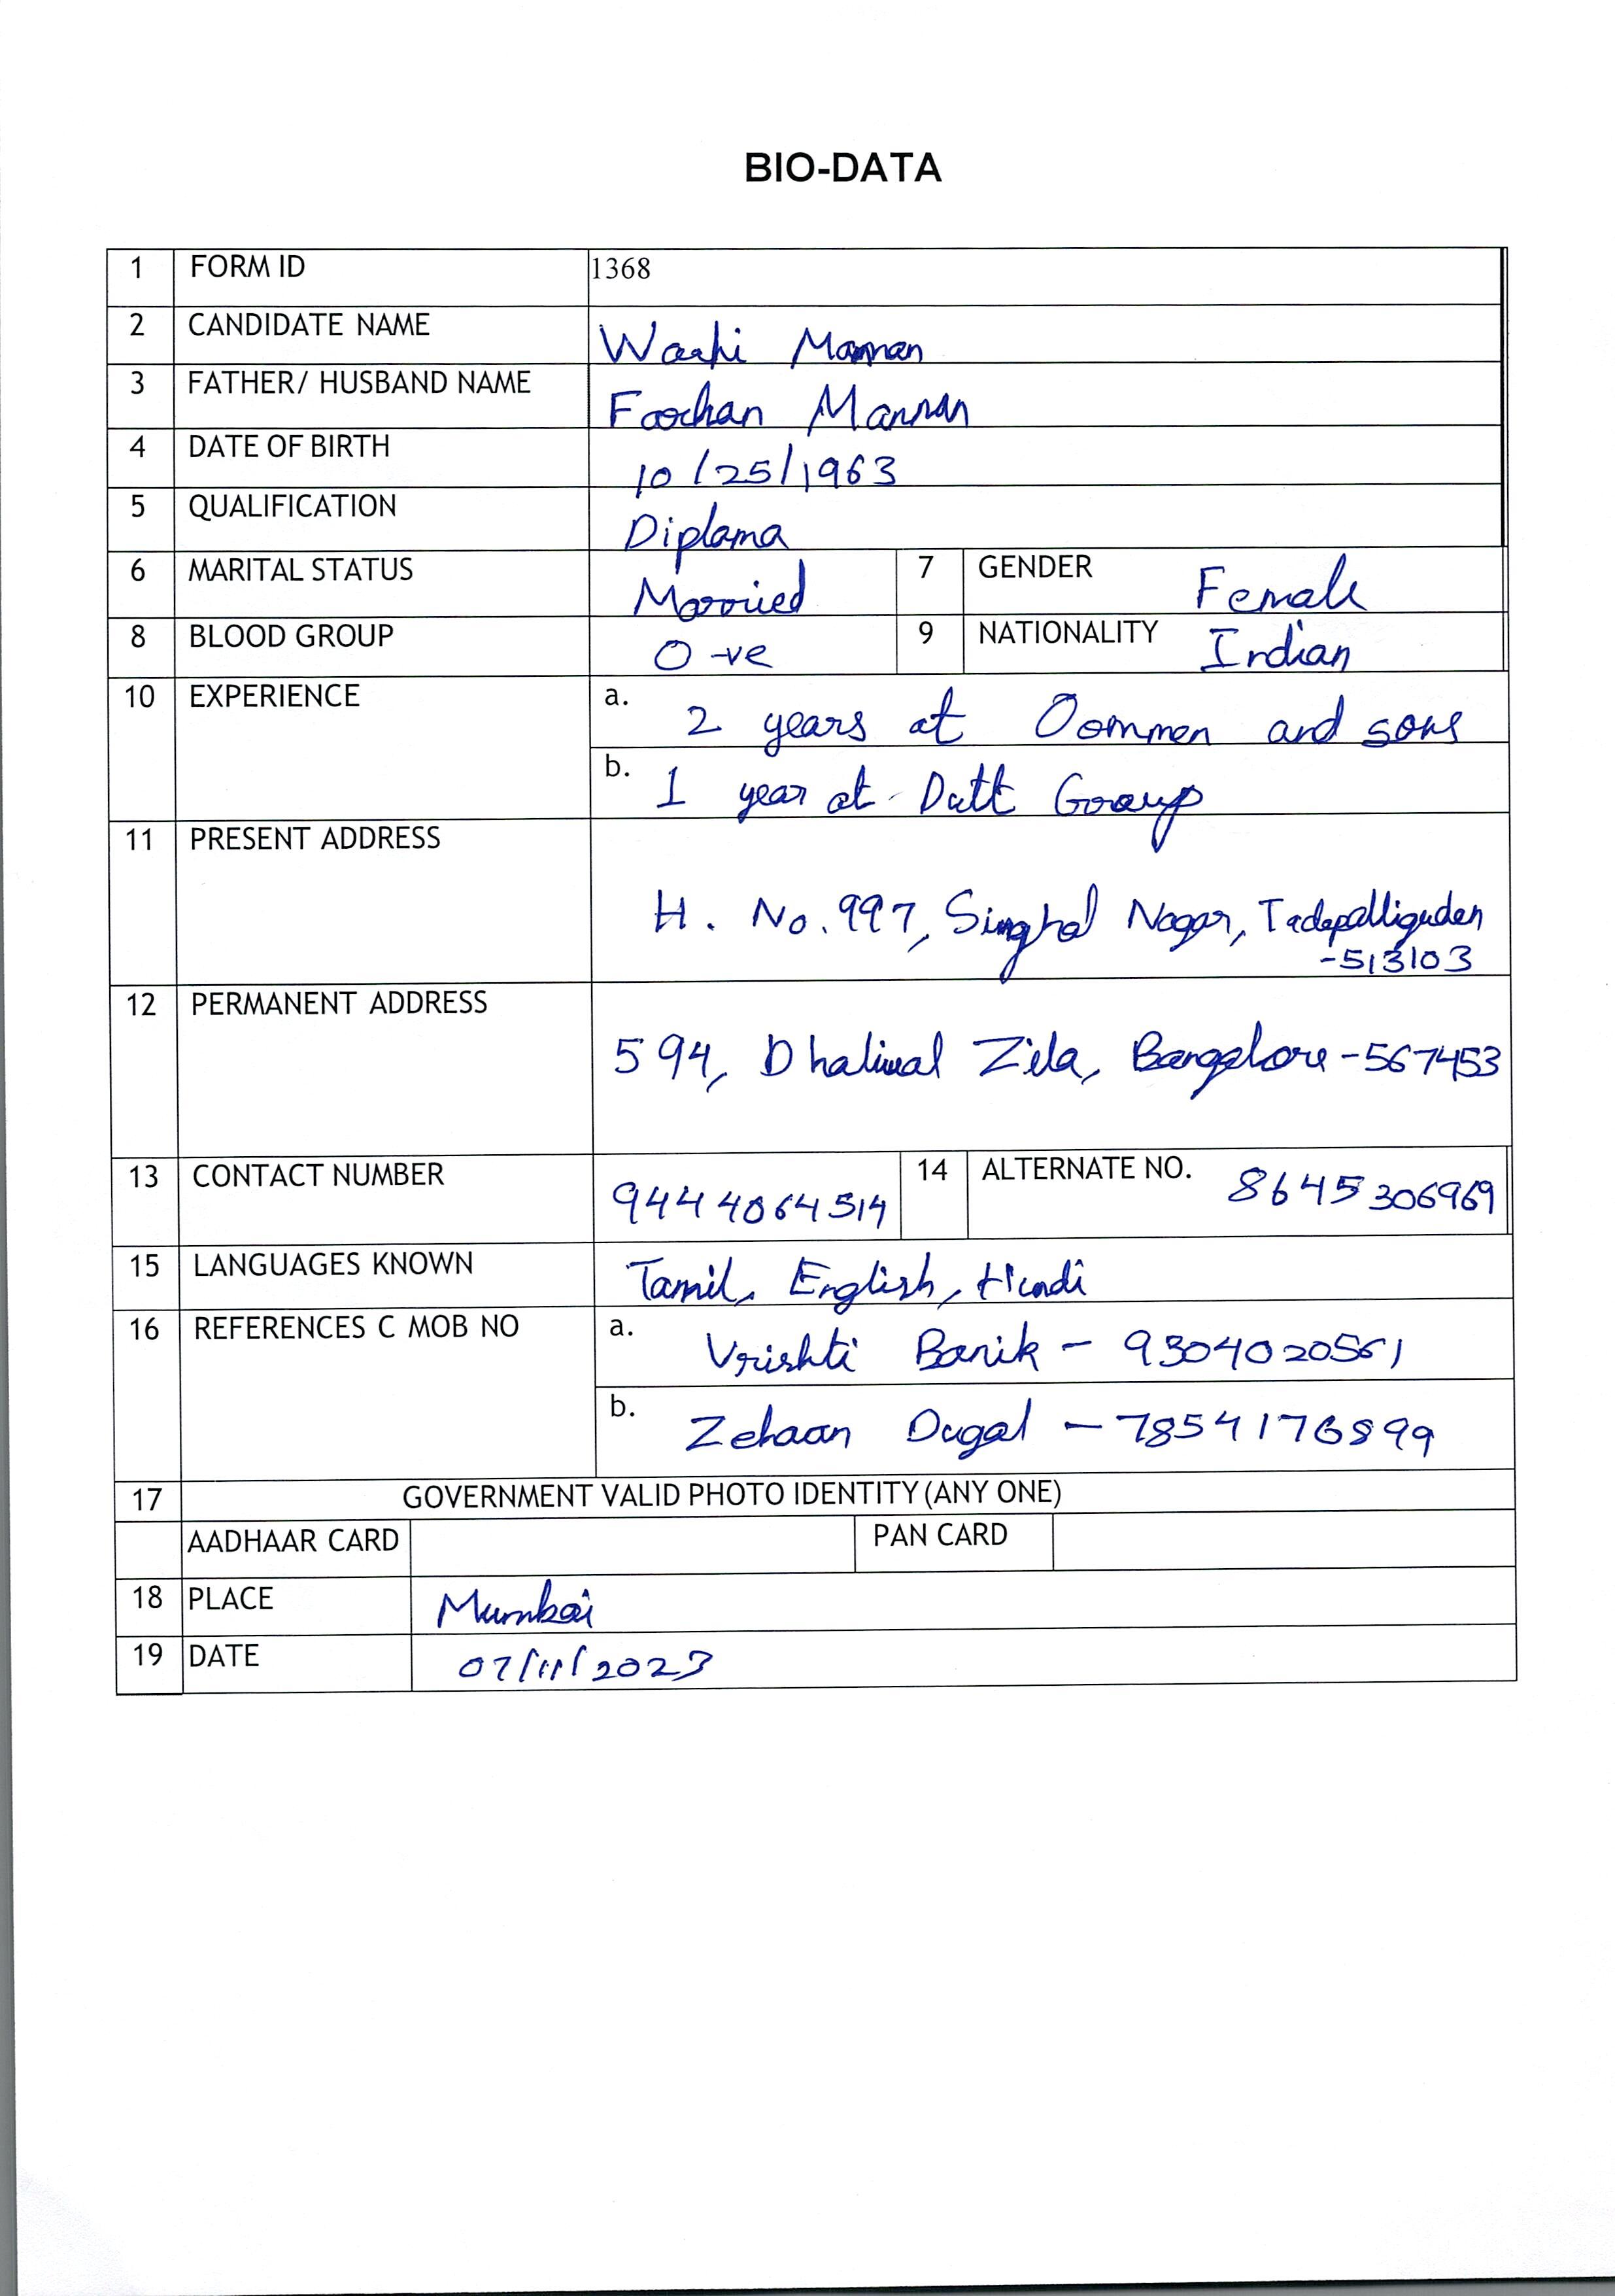 BIO-DATA
1 FORM ID 1368
2 CANDIDATE NAME Warhi Mannan
3 FATHER/ HUSBAND NAME Farhan Mannan
4 DATE OF BIRTH 10/25/1963
5 QUALIFICATION Diploma
6 MARITAL STATUS Married 7 GENDER Female
8 BLOOD GROUP O -ve 9 NATIONALITY Indian
10 EXPERIENCE a. 2 years at Oommen and sons
b. 1 year at Dutt Group
11 PRESENT ADDRESS
H. No. 997, Singhal Nagar, Tadepalligudem
-513103
12 PERMANENT ADDRESS
594, Dhaliwal Zila, Bangalore-567453
13 CONTACT NUMBER 9444064514 14 ALTERNATE NO. 8645306969
15 LANGUAGES KNOWN Tamil, English, Hindi
16 REFERENCES C MOB NO a. Vrishti Banik - 9304020561
b. Zehaan Dugal - 7854176899
17 GOVERNMENT VALID PHOTO IDENTITY (ANY ONE)
AADHAAR CARD PAN CARD
18 PLACE Mumbai
19 DATE 07/11/2023